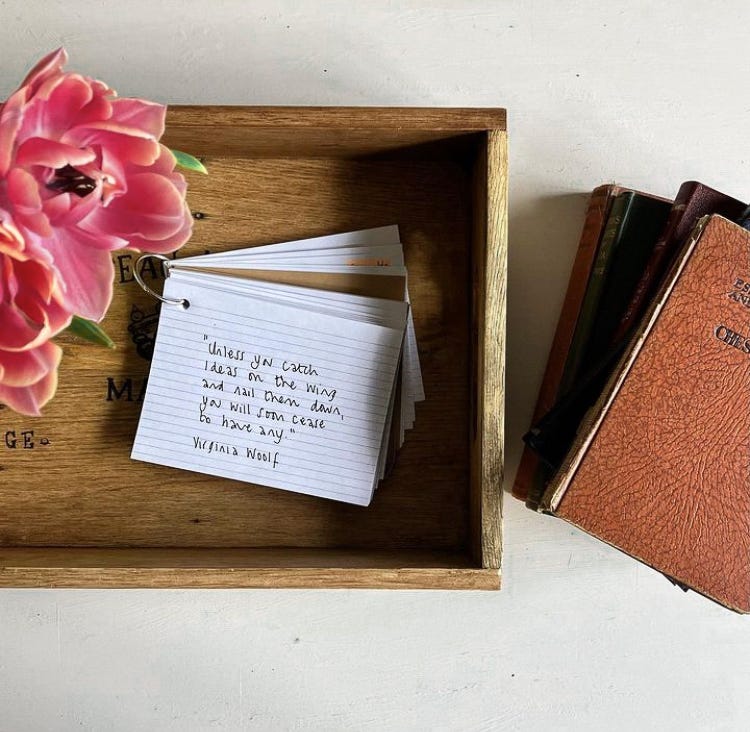 "Unless you catch
ideas on the wing
and nail them down,
you will soon cease
to have any."
Virginia Woolf
MA
GE